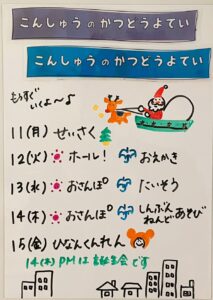 こんしゅうのかつどうよてい
こんしゅうのかつどうよてい
もうすぐ
いくよ〜♪
11(月) せいさく
12(火) ホール! おえかき
13(水) おさんぽ たいそう
14(木) おさんぽ しんぶん ねんど あそび
15(金) ひなんくんれん
14(木) PMは です